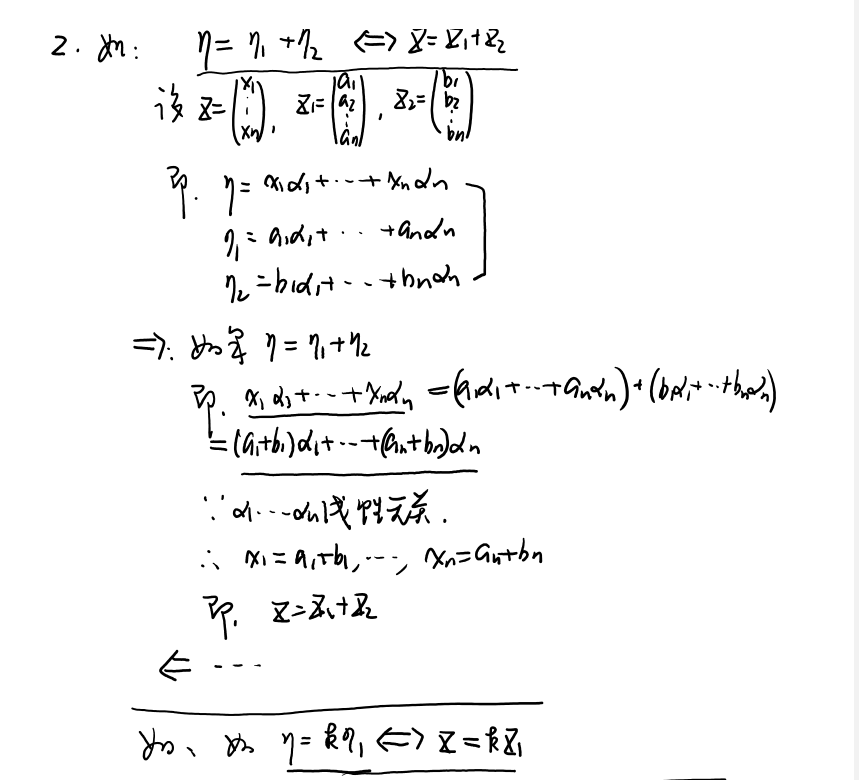 2. 如: η = η₁ + η₂ ⟺ X = X₁ + X₂
设 X = (x₁ ⋮ xₙ), X₁ = (a₁ a₂ ⋮ aₙ), X₂ = (b₁ b₂ ⋮ bₙ)
即. η = x₁α₁ + ··· + xₙαₙ
η₁ = a₁α₁ + ··· + aₙαₙ
η₂ = b₁α₁ + ··· + bₙαₙ
⇒: 如果 η = η₁ + η₂
即. x₁α₁ + ··· + xₙαₙ = (a₁α₁ + ··· + aₙαₙ) + (b₁α₁ + ··· + bₙαₙ)
= (a₁+b₁)α₁ + ··· + (aₙ+bₙ)αₙ
∵ α₁ ··· αₙ 线性无关.
∴ x₁ = a₁+b₁, ···, xₙ = aₙ+bₙ
即. X = X₁ + X₂
⇐ ···
η = kη₁ ⟺ X = kX₁